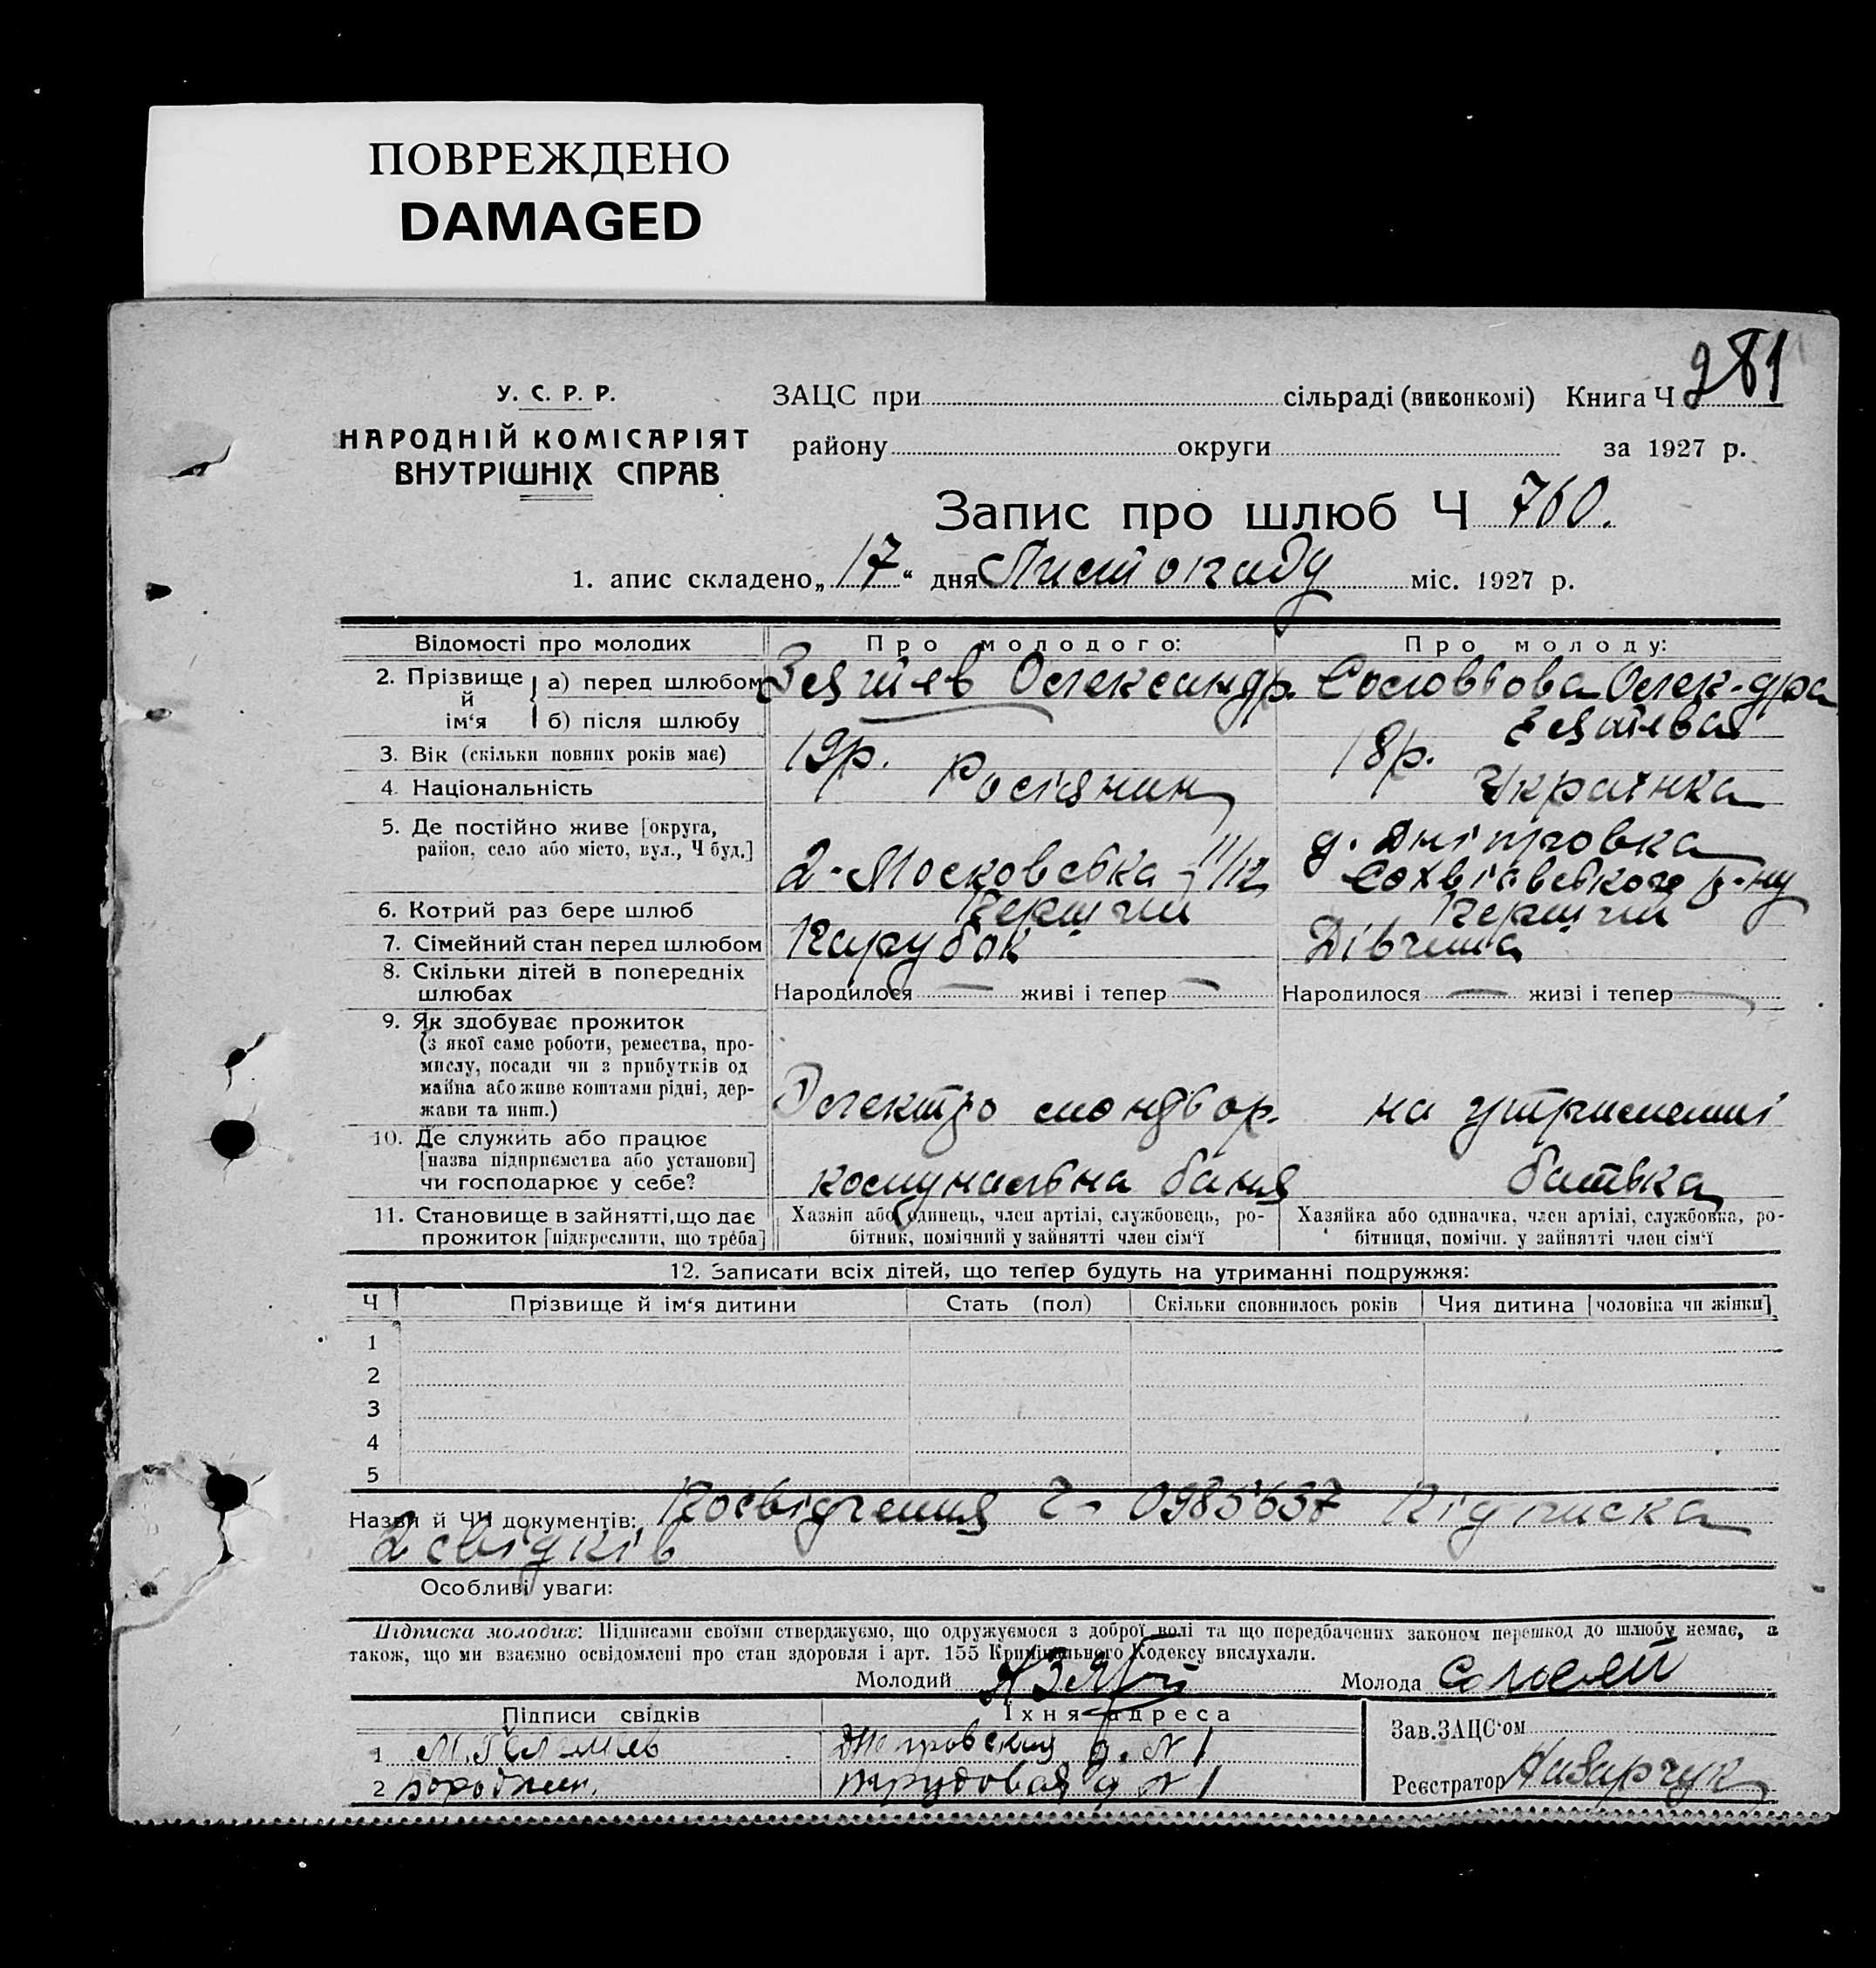 ПОВРЕЖДЕНО
DAMAGED
281
У. С. Р. Р.
НАРОДНІЙ КОМІСАРІЯТ
ВНУТРІШНІХ СПРАВ
ЗАЦС при сільраді (виконкомі) Книга Ч
району округи за 1927 р.
Запис про шлюб Ч 760.
1. апис складено „17“ дня Листопаду міс. 1927 р.
Відомості про молодих
Про молодого:
Про молоду:
2. Прізвище й ім‘я
а) перед шлюбом
Олександр.
Олек-дра
б) після шлюбу
3. Вік (скільки повних років має)
19р.
18р.
4. Національність
Росіянин
Українка
5. Де постійно живе [округа,
район, село або місто, вул., Ч буд.]
2-Московська 11/12
д. Дніпровка
р-ну
6. Котрий раз бере шлюб
Перший
Перший
7. Сімейний стан перед шлюбом
Парубок
Дівчина
8. Скільки дітей в попередніх
шлюбах
Народилося — живі і тепер —
Народилося — живі і тепер —
9. Як здобуває прожиток
(з якої саме роботи, ремества, про-
мислу, посади чи з прибутків од
майна або живе коштами рідні, дер-
жави та инш.)
Електро монтьор.
на утриманні
10. Де служить або працює
[назва підприємства або установи]
чи господарює у себе?
комунальна баня
батька
11. Становище в зайнятті, що дає
прожиток [підкреслити, що треба]
Хазяїн або одинець, член артілі, службовець, ро-
бітник, помічний у зайнятті член сім‘ї
Хазяйка або одиначка, член артілі, службовка, ро-
бітниця, помічн. у зайнятті член сім‘ї
12. Записати всіх дітей, що тепер будуть на утриманні подружжя:
Ч
Прізвище й ім‘я дитини
Стать (пол)
Скільки сповнилось років
Чия дитина [чоловіка чи жінки]
1
2
3
4
5
Назви й ЧЧ документів: Посвідчення Ч- 0985637 Підписка
2 свідків
Особливі уваги:
Підписка молодих: Підписами своїми стверджуємо, що одружуємося з доброї волі та що передбачених законом перешкод до шлюбу немає, а
також, що ми взаємно освідомлені про стан здоровля і арт. 155 Кримінального Кодексу вислухали.
Молодий
Молода
Підписи свідків
Їхня адреса
Зав. ЗАЦС‘ом
1
д. N 1
2
трудовая д N 1
Реєстратор Назарчук